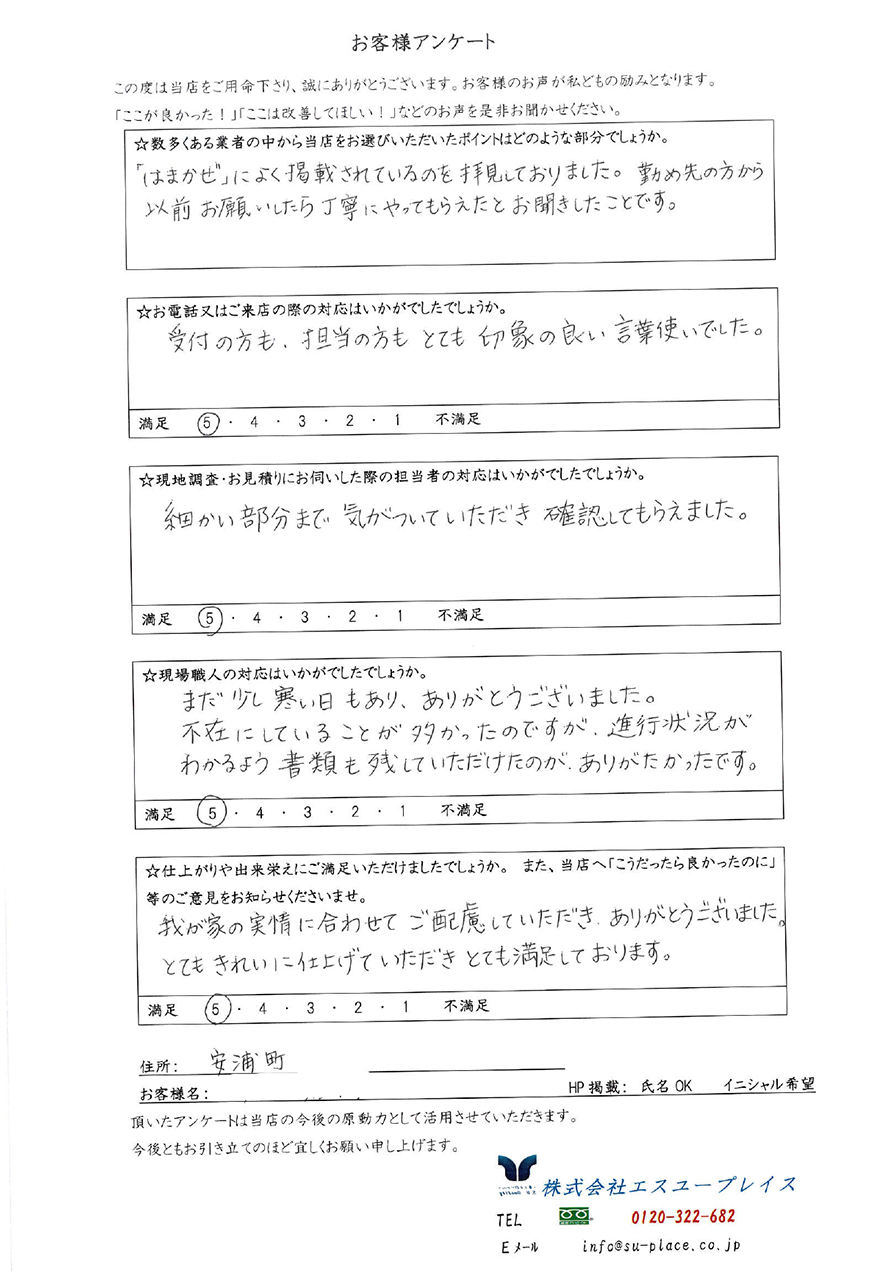 お客様アンケート
この度は当店をご用命下さり、誠にありがとうございます。お客様のお声が私どもの励みとなります。
「ここが良かった！」「ここは改善してほしい！」などのお声を是非お聞かせください。
☆数多くある業者の中から当店をお選びいただいたポイントはどのような部分でしょうか。
「はまかぜ」によく掲載されているのを拝見しておりました。勤め先の方から
以前お願いしたら丁寧にやってもらえたとお聞きしたことです。
☆お電話又はご来店の際の対応はいかがでしたでしょうか。
受付の方も、担当の方もとても印象の良い言葉使いでした。
満足 5・4・3・2・1 不満足
☆現地調査・お見積りにお伺いした際の担当者の対応はいかがでしたでしょうか。
細かい部分まで気がついていただき確認してもらえました。
満足 5・4・3・2・1 不満足
☆現場職人の対応はいかがでしたでしょうか。
まだ少し寒い日もあり、ありがとうございました。
不在にしていることが多かったのですが、進行状況が
わかるよう書類も残していただけたのが、ありがたかったです。
満足 5・4・3・2・1 不満足
☆仕上がりや出来栄えにご満足いただけましたでしょうか。 また、当店へ「こうだったら良かったのに」
等のご意見をお知らせくださいませ。
我が家の実情に合わせてご配慮していただき、ありがとうございました。
とてもきれいに仕上げていただきとても満足しております。
満足 5・4・3・2・1 不満足
住所： 安浦町
お客様名： HP掲載： 氏名OK イニシャル希望
頂いたアンケートは当店の今後の原動力として活用させていただきます。
今後ともお引き立てのほど宜しくお願い申し上げます。
株式会社エスユープレイス
TEL 0120-322-682
Eメール info@su-place.co.jp